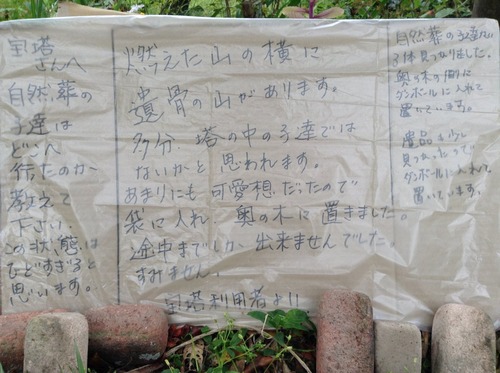 宝塔
さんへ
自然葬の
子達は
どこへ
行たのか
教えて
下さい。
この状態は
ひどすぎると
思います。
燃えた山の横に
遺骨の山があります。
多分、塔の中の子達では
ないかと思われます。
あまりにも可愛想だったので
袋に入れ 奥の木に置きました。
途中までしか出来ませんでした。
すみません。
宝塔利用者より
自然葬の子達ない
3体見つかりました。
奥の木の間に
ダンボールに入れて
置いています。
遺品も少し
見つかったので
ダンボールに入れて
置いています。